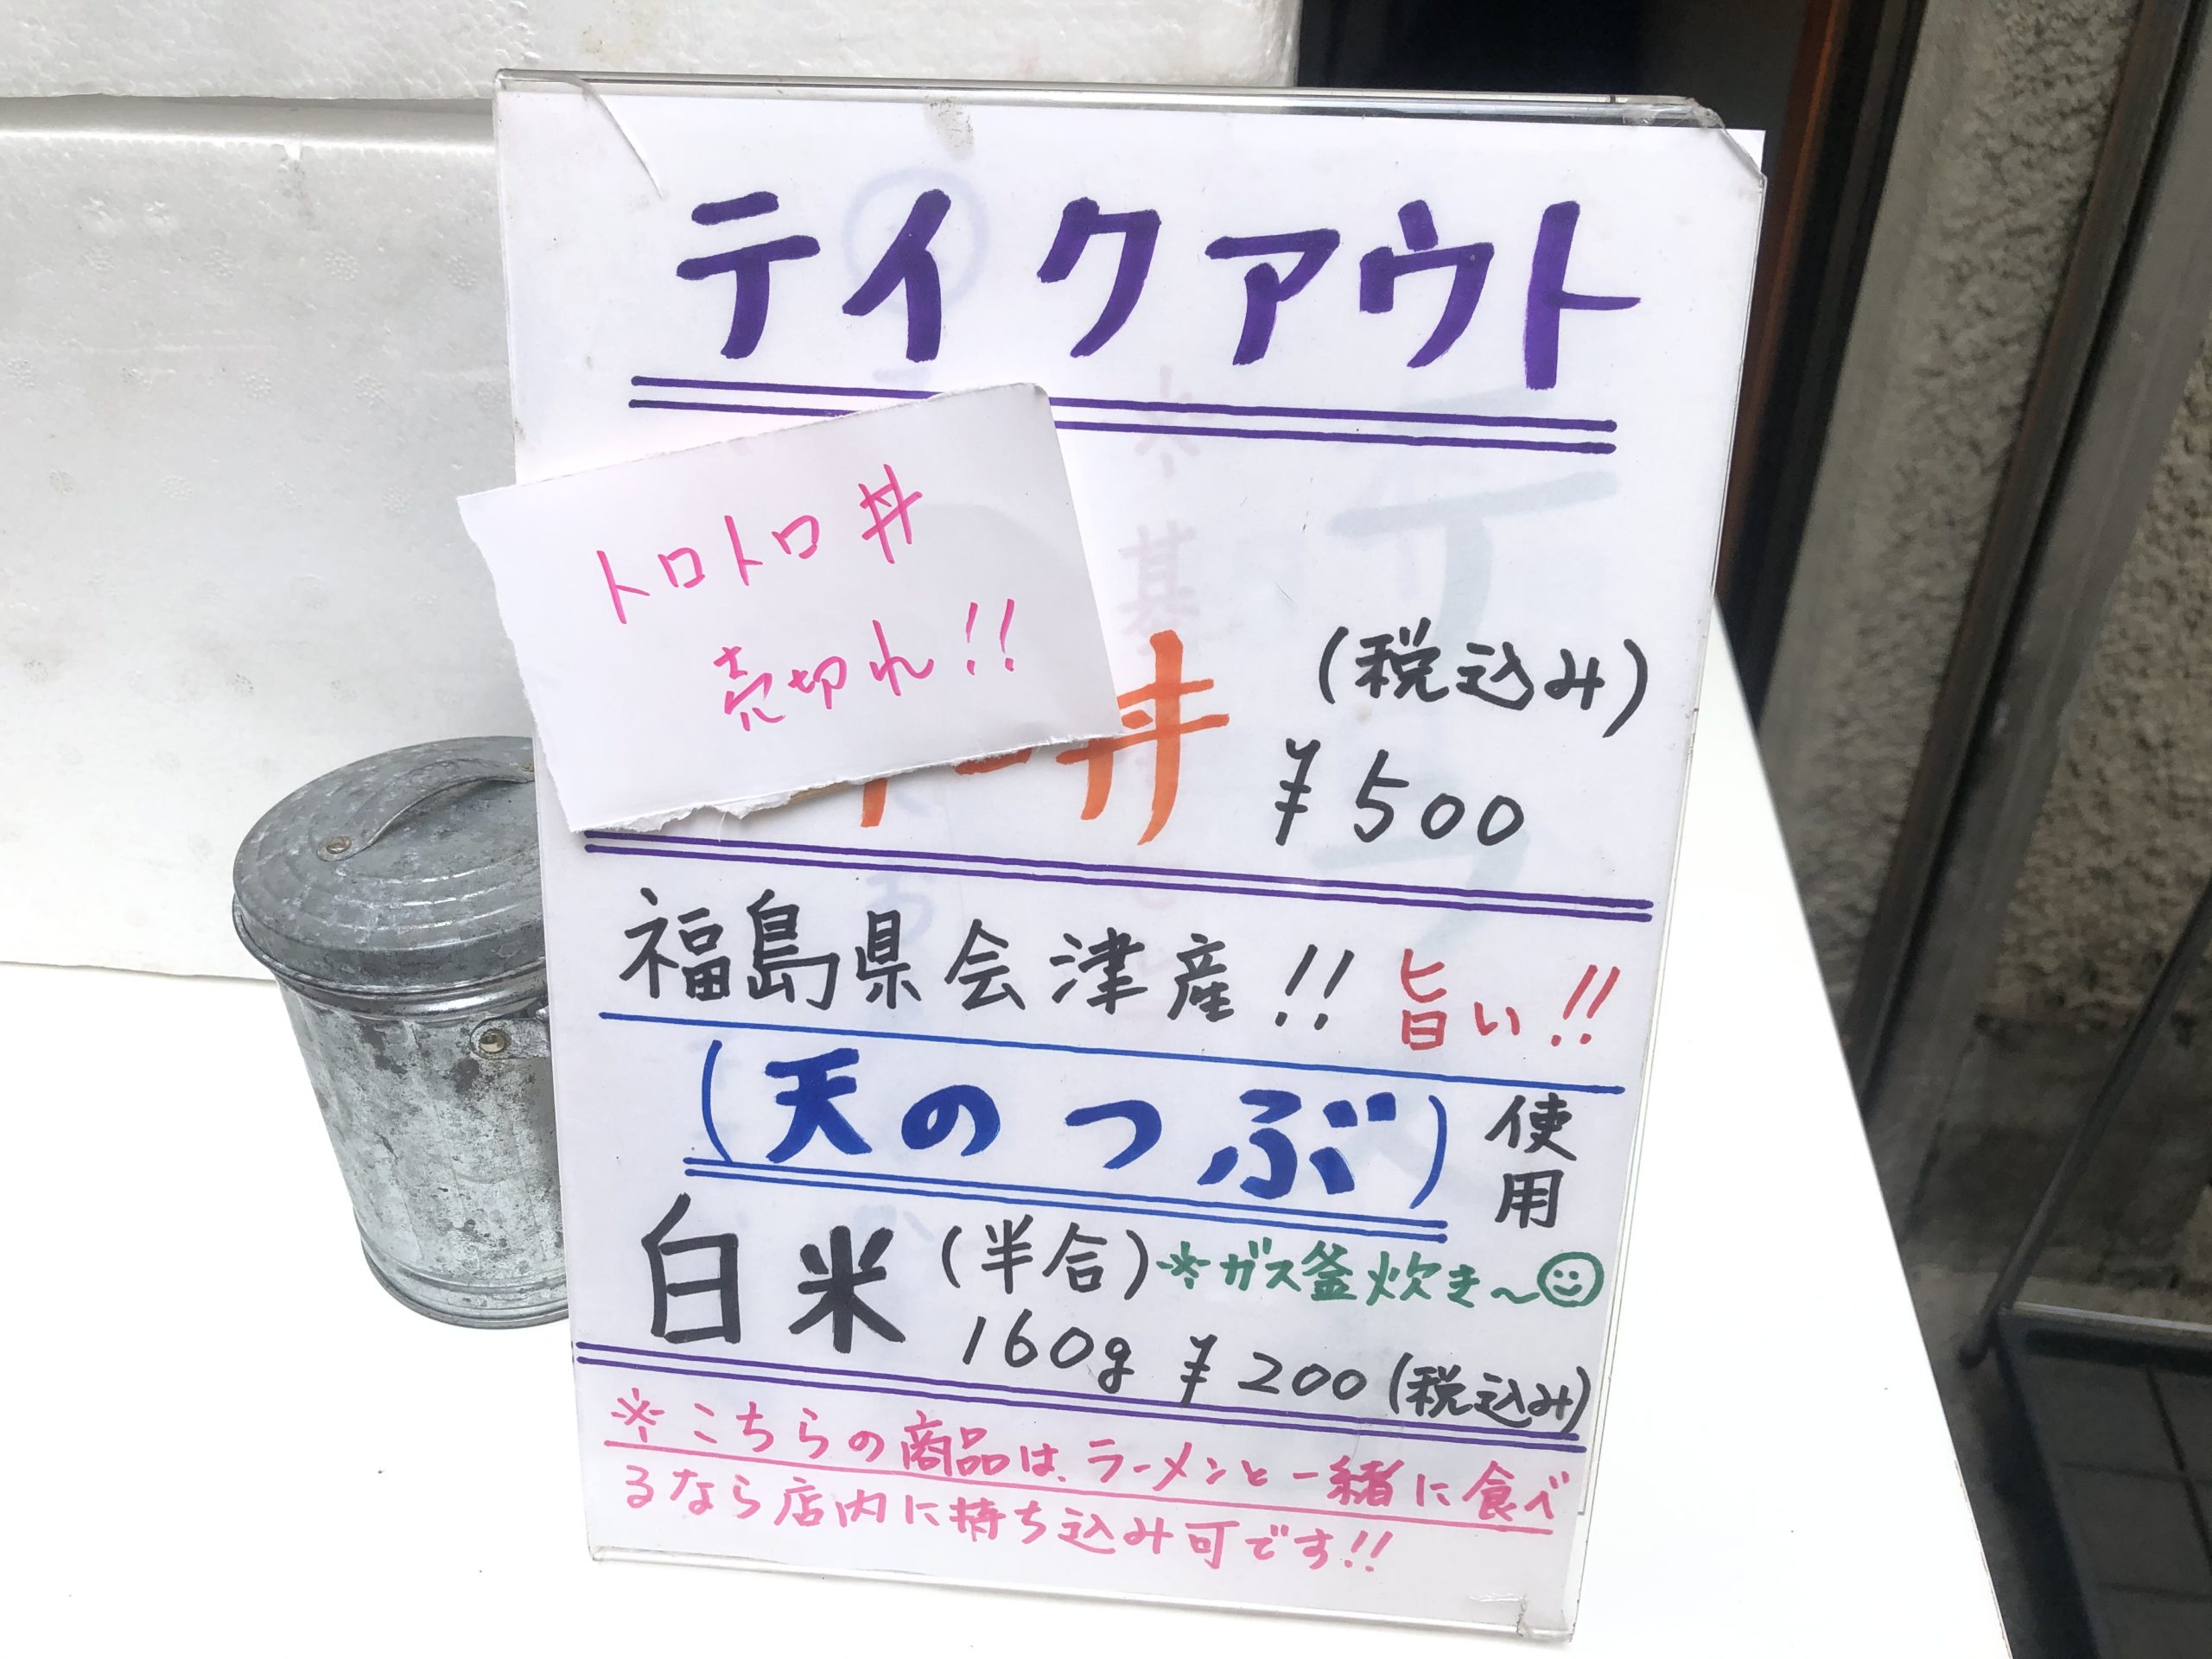 テイクアウト
トロトロ丼
売切れ!!
丼
(税込み)
¥500
福島県会津産!! 旨い!!
(天のつぶ)使用
白米(半合)※ガス釜炊き〜☺
160g ¥200(税込み)
※こちらの商品は、ラーメンと一緒に食べ
るなら店内に持ち込み可です!!